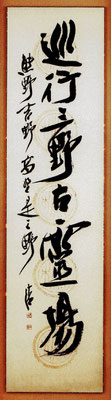 巡行三野古靈場
熊野吉野高野是三野